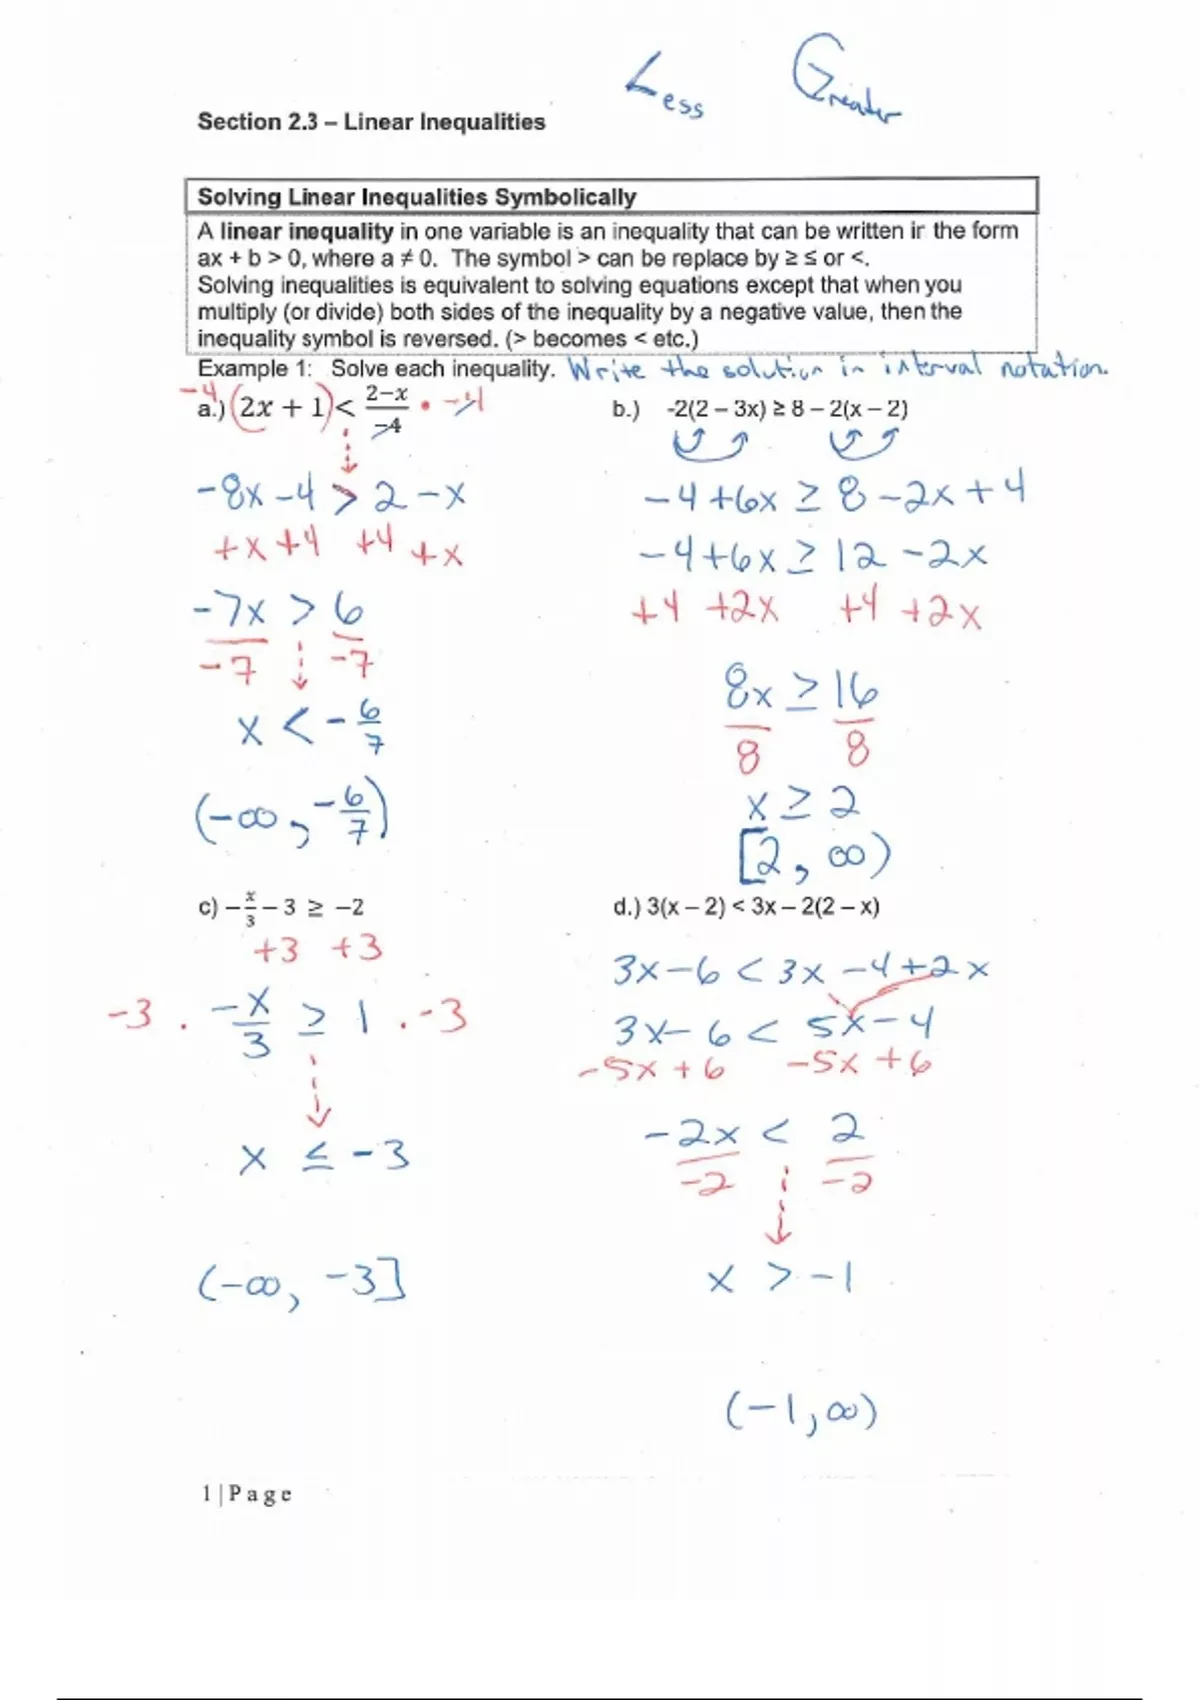 Less Greater
Section 2.3 – Linear Inequalities
Solving Linear Inequalities Symbolically
A linear inequality in one variable is an inequality that can be written in the form
ax + b > 0, where a ≠ 0. The symbol > can be replace by ≥ ≤ or <.
Solving inequalities is equivalent to solving equations except that when you
multiply (or divide) both sides of the inequality by a negative value, then the
inequality symbol is reversed. (> becomes < etc.)
Example 1: Solve each inequality. Write the solution in interval notation.
a.) -4 (2x + 1) < (2−x)/−4 • -4
-8x -4 > 2 -x
+x +4 +4 +x
-7x > 6
-7 -7
x < -6/7
(-∞, -6/7)
b.) -2(2 – 3x) ≥ 8 – 2(x – 2)
-4 +6x ≥ 8 -2x +4
-4+6x ≥ 12 -2x
+4 +2x +4 +2x
8x ≥ 16
8 8
x ≥ 2
[2, ∞)
c) −x/3 − 3 ≥ −2
+3 +3
-3 · -x/3 ≥ 1 · -3
x ≤ -3
(-∞, -3]
d.) 3(x – 2) < 3x – 2(2 – x)
3x-6 < 3x -4+2x
3x-6 < 5x-4
-5x +6 -5x +6
-2x < 2
-2 -2
x > -1
(-1, ∞)
1 | P a g e